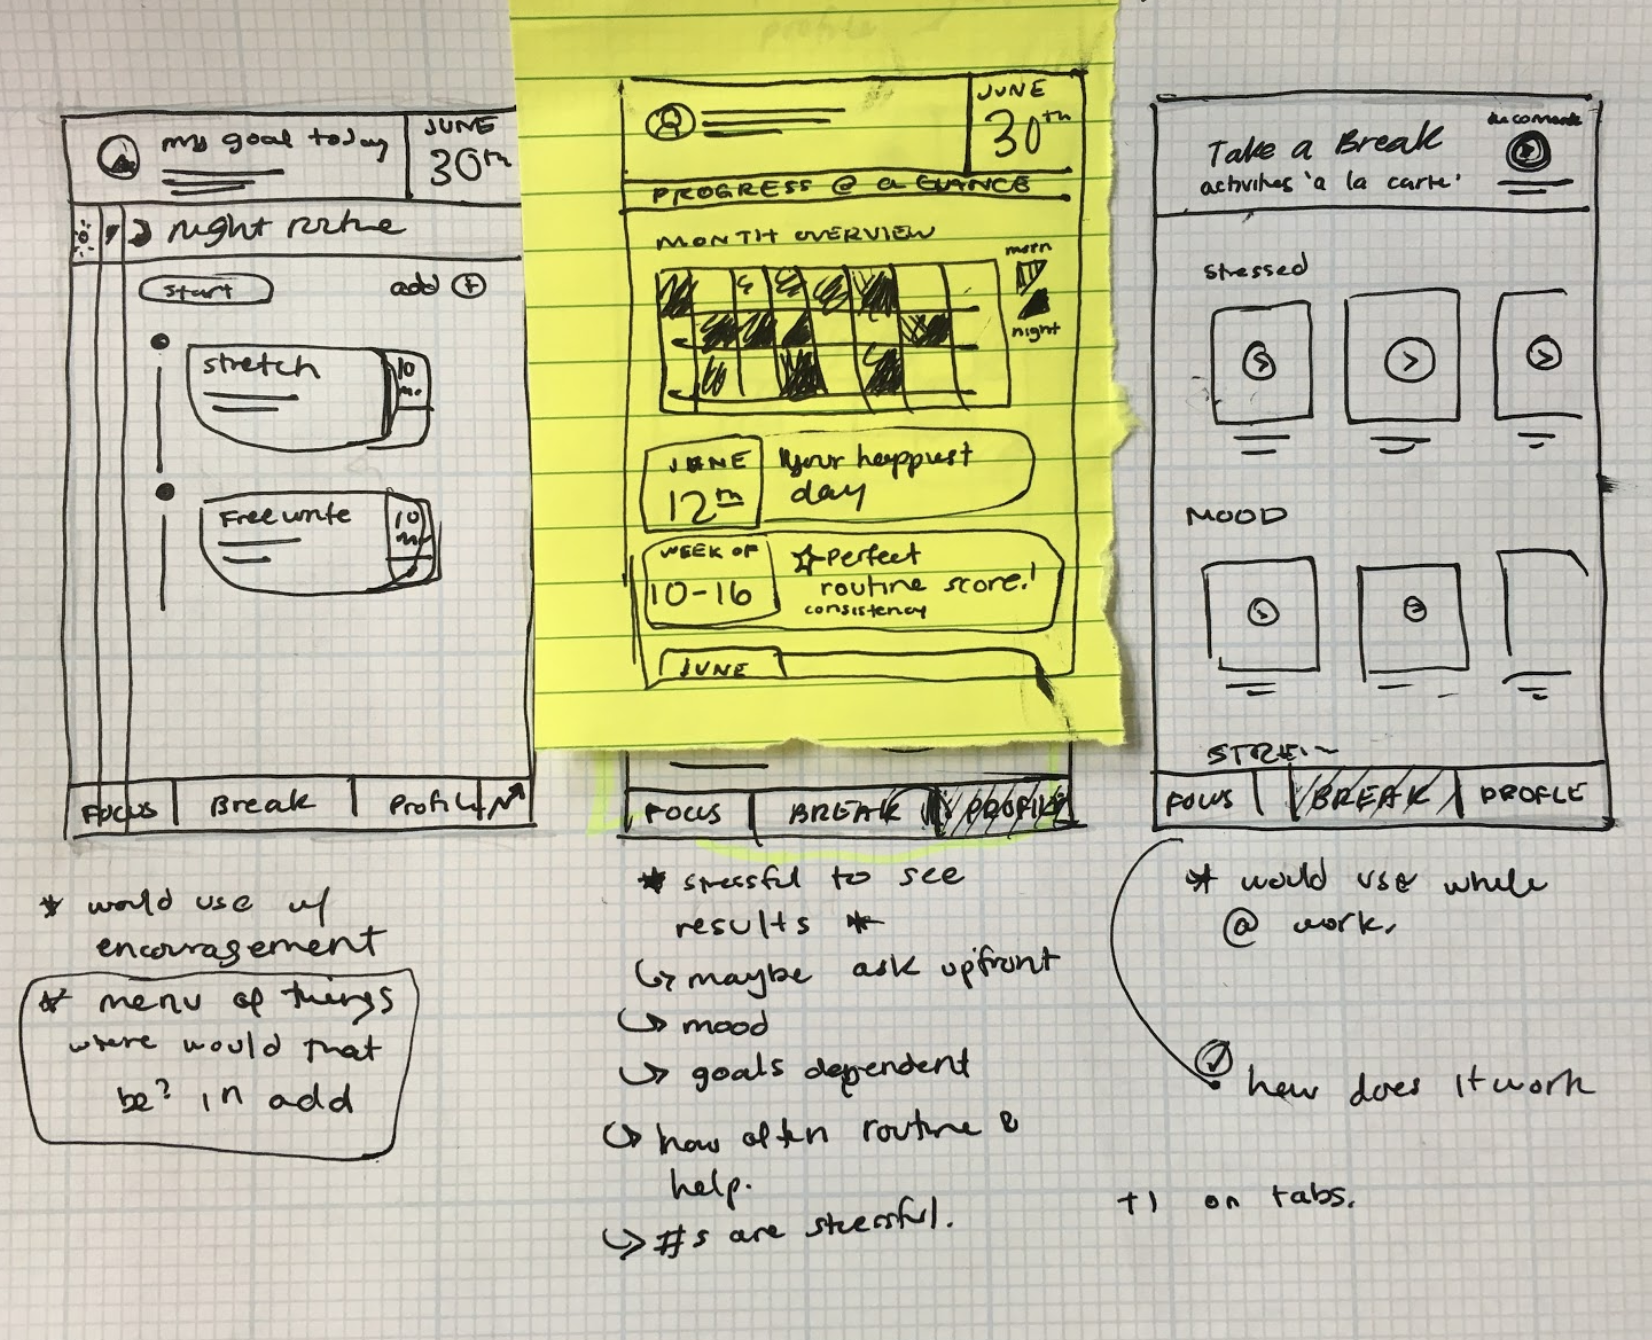 my goal today
JUNE
30th
night routine
start
add +
stretch
10
Freewrite
10
FOCUS
Break
Profile
* would use w/
encouragement
* menu of things
where would that
be? in add
profile
JUNE
30th
PROGRESS @ a GLANCE
MONTH OVERVIEW
morn
night
JUNE
12th
Your happiest
day
WEEK OF
10-16
☆ Perfect
routine score!
consistency
JUNE
FOCUS
BREAK
PROFILE
* stressful to see
results *
↳ maybe ask upfront
↳ mood
↳ goals dependent
↳ how often routine &
help.
↳ #s are stressful.
Take a Break
activities 'a la carte'
stressed
MOOD
FOCUS
BREAK
PROFLE
* would use while
@ work.
how does it work
+1 on tabs.